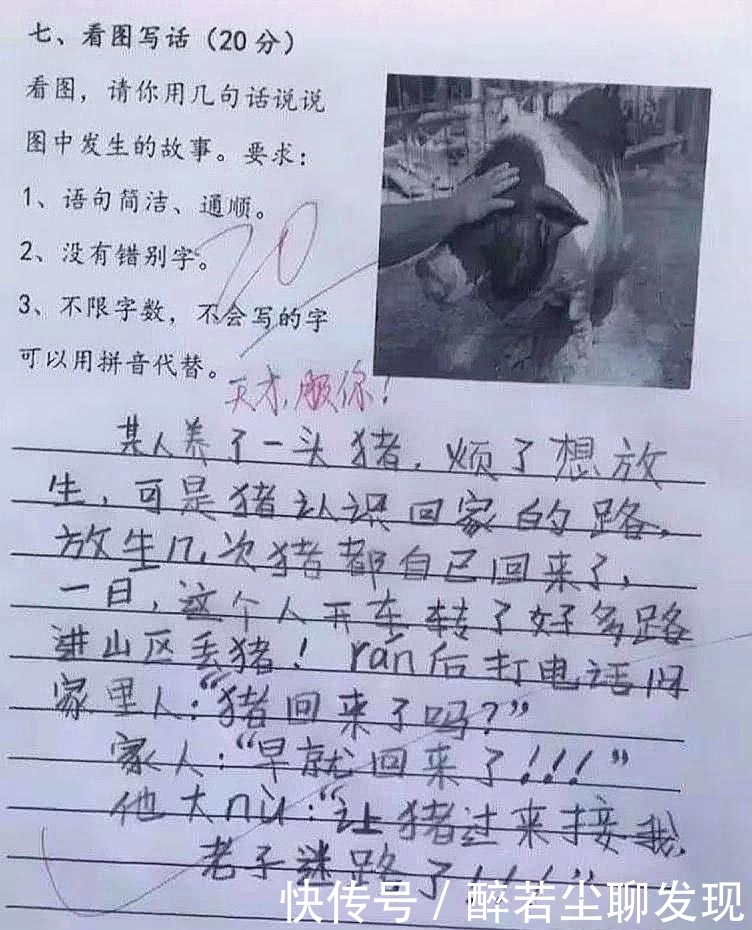 七、看图写话（20分）
看图，请你用几句话说说
图中发生的故事。要求：
1、语句简洁、通顺。
2、没有错别字。
3、不限字数，不会写的字
可以用拼音代替。
20
天才，服你！
某人养了一头猪，烦了想放
生，可是猪认识回家的路，
放生几次猪都自己回来了，
一日，这个人开车转了好多路
进山区丢猪！rán后打电话问
家里人：“猪回来了吗？”
家人：“早就回来了！！！”
他大nù：“让猪过来接我，
老子迷路了！！！”
快传号 / 醉若尘聊发现